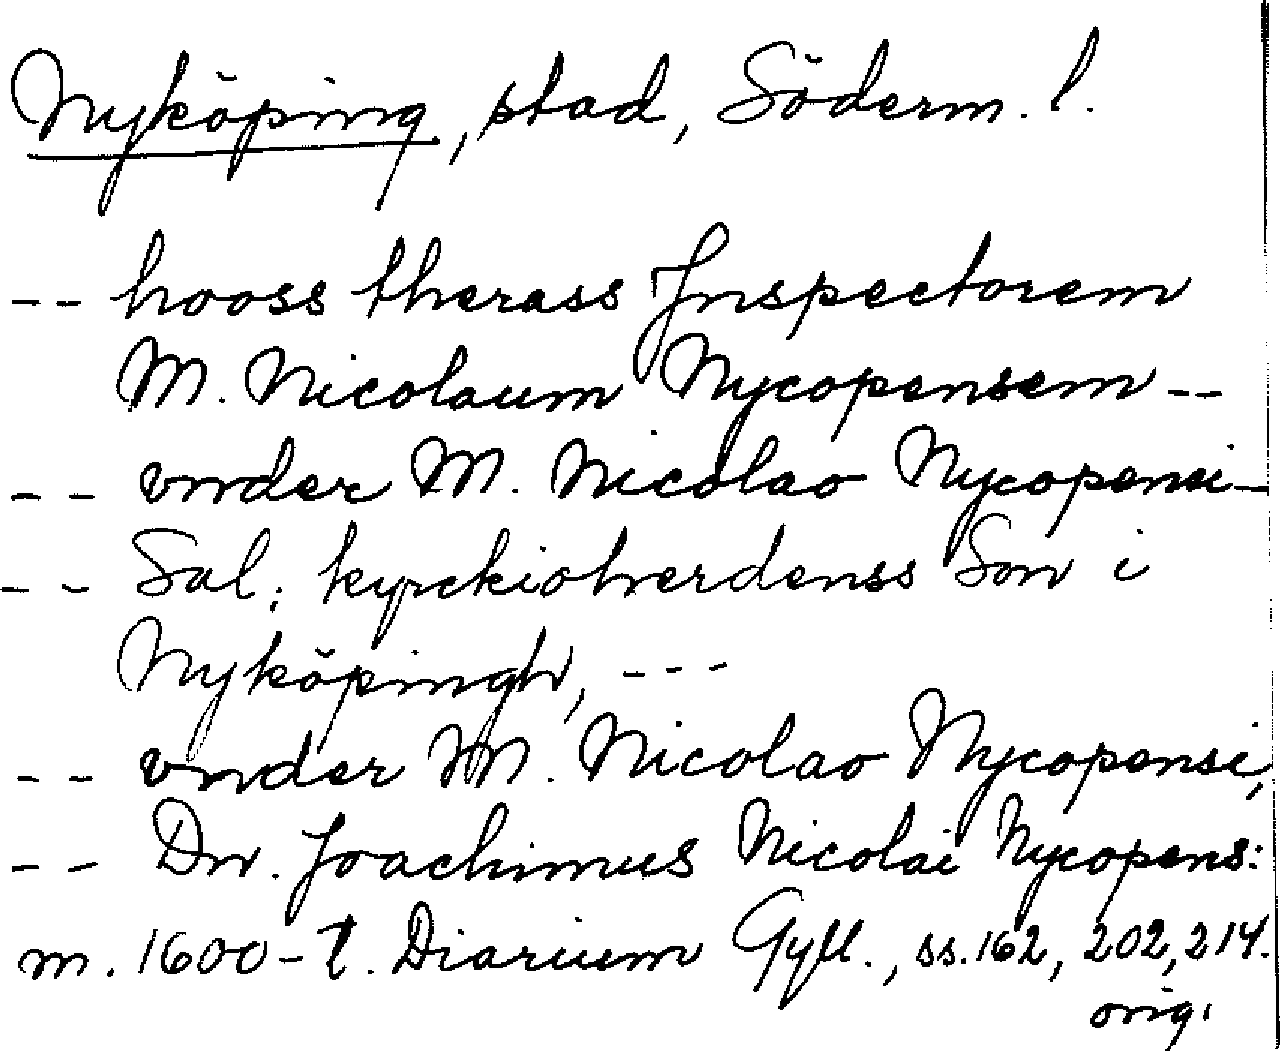 Nyköping, stad, Söderm. l.
-- hooss therass Inspectorem
M. Nicolaum Nycopensem --
-- vnder M. Nicolao Nycopensi -
-- Sal: kyrckiohverdenss Son i
Nyköpingh, ---
-- vnder M. Nicolao Nycopensi,
-- Dn. Joachimus Nicolai Nycopens:
m. 1600-t. Diarium Gyll., ss. 162, 202, 214.
orig.